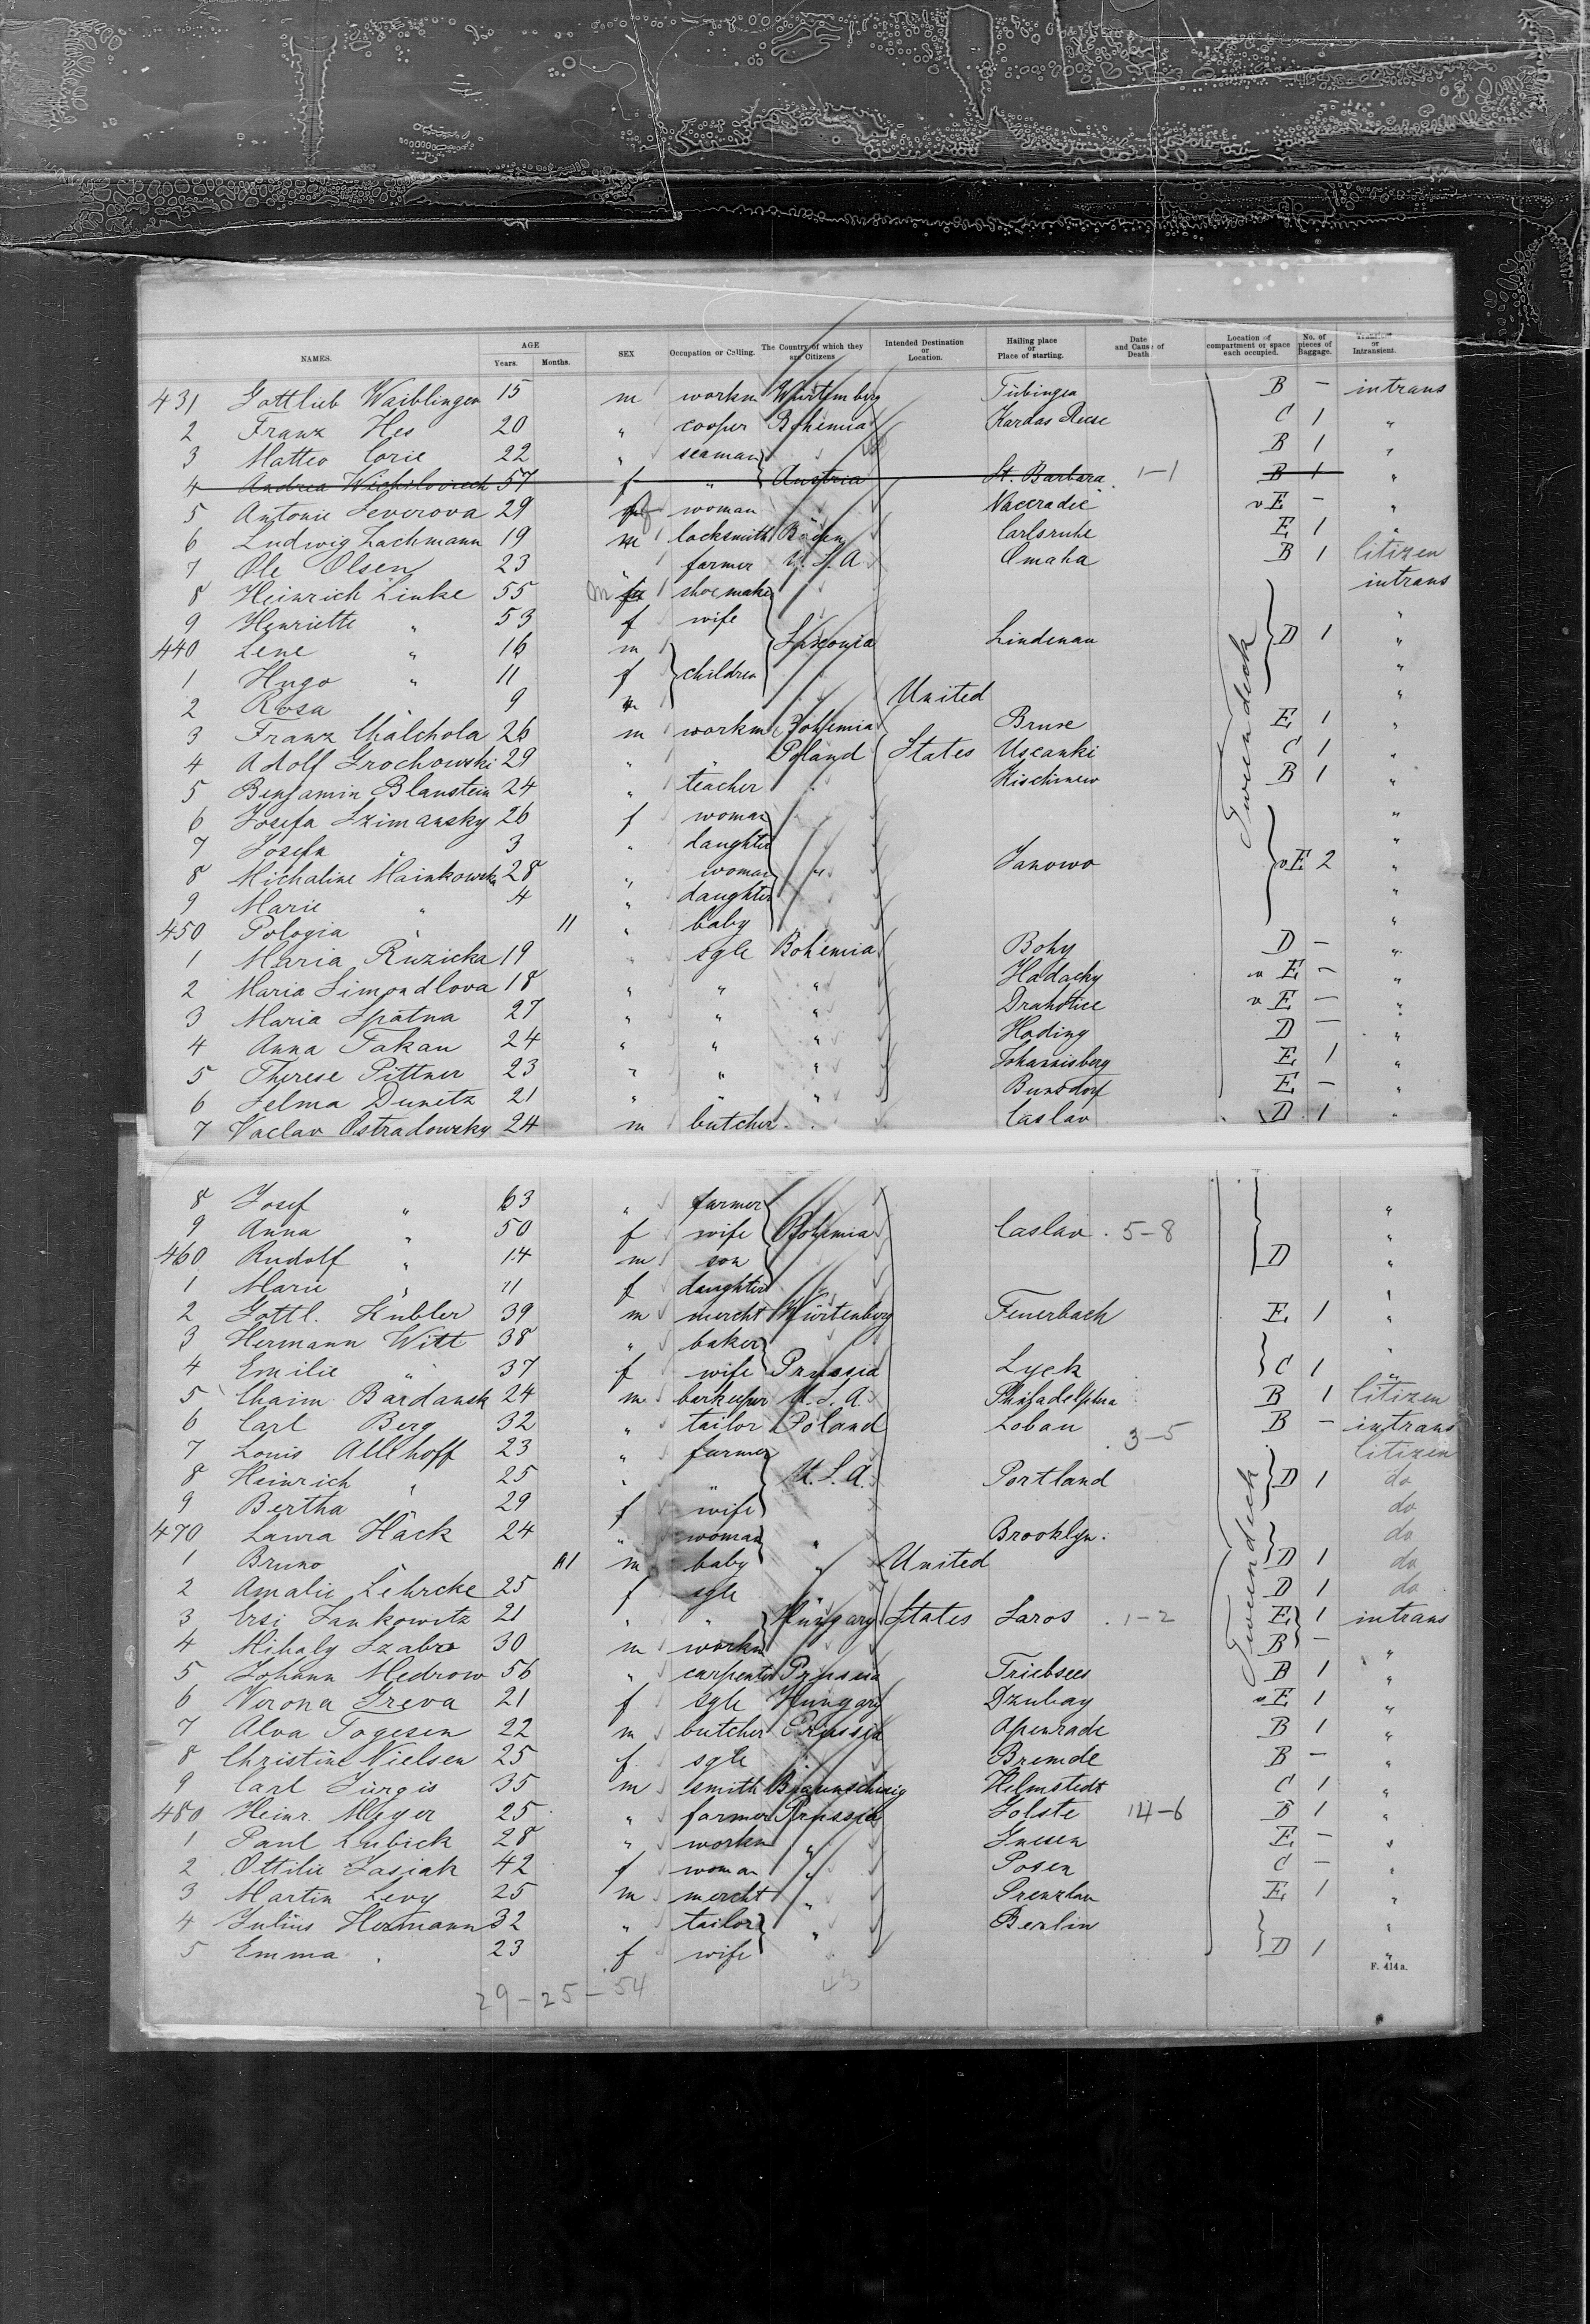 NAMES. AGE Years. Months. SEX Occupation or Calling. The Country of which they are Citizens Intended Destination or Location. Hailing place or Place of starting. Date and Cause of Death Location of compartment or space each occupied. No. of pieces of Baggage. or Intransient.
431 Gottlieb Waiblinger 15 m workm Würtemberg Tübingen B – intrans
2 Franz Hes 20 " cooper Bohemia Kardas C 1 "
3 Matteo Coric 22 " seaman B 1 "
4 Andrea 57 f " Austria St. Barbara 1–1 B 1 "
5 Antonie Severova 29 f woman Naceradic v E – "
6 Ludwig Lachmann 19 m locksmith Baden Carlsruhe E 1 "
7 Ole Olsen 23 " farmer U.S.A. Omaha B 1 Citizen
8 Heinrich Linke 55 m shoemaker intrans
9 Henriette " 53 f wife "
440 Lene " 16 m children Saxonia Lindenau D 1 "
1 Hugo " 11 f "
2 Rosa " 9 m United "
3 Franz Chalchola 26 m workm Bohemia Bruse E 1 "
4 Adolf Grochowski 29 " " Poland States Uscanki C 1 "
5 Benjamin Blaustein 24 " teacher Kischinew B 1 "
6 Josefa Szimansky 26 f woman "
7 Josefa " 3 " daughter "
8 Michaline Mainkowska 28 " woman " Janowo v E 2 "
9 Marie " 4 " daughter "
450 Pologia " 11 " baby "
1 Maria Ruzicka 19 " sgle Bohemia Bohy D – "
2 Maria Simondlova 18 " " " Hadachy v E – "
3 Maria Spatna 27 " " " Drahotice v E – "
4 Anna Takau 24 " " " Hoding D – "
5 Therese Pittner 23 " " " Johannisberg E 1 "
6 Selma Dunetz 21 " " " Bunsdorf E – "
7 Vaclav Ostradowzky 24 m butcher Caslav D 1 "
8 Josef " 63 " farmer "
9 Anna " 50 f wife Bohemia Caslav 5–8 "
460 Rudolf " 14 m son D "
1 Marie " 11 f daughter "
2 Gottl. Kubler 39 m mercht Würtenberg Feuerbach E 1 "
3 Hermann Witt 38 " baker "
4 Emilie " 37 f wife Prussia Lyck C 1 "
5 Chaim Bardansk 24 m barkeeper U.S.A. Philadelphia B 1 Citizen
6 Carl Berg 32 " tailor Poland Lobau B – intrans
7 Louis Allhoff 23 " farmer 3–5 Citizen
8 Heinrich " 25 " " U.S.A. Portland D 1 do
9 Bertha " 29 f wife do
470 Laura Hack 24 " woman " Brooklyn do
1 Bruno " 11 m baby " United D 1 do
2 Amalie Lehrcke 25 f sgle D 1 do
3 Ersi Lankowitz 21 " " Hungary States Saros 1–2 E 1 intrans
4 Mihaly Szabo 30 m workm B – "
5 Johann Medrow 56 " carpenter Prussia Triebsees B 1 "
6 Verona Greva 21 f sgle Hungary Dzubay v E 1 "
7 Alva Togesen 22 m butcher Prussia Apenrade B 1 "
8 Christine Nielsen 25 f sgle " Bremde B – "
9 Carl Jürgis 35 m smith Braunschweig Helmstedt C 1 "
480 Heinr. Meyer 25 " farmer Prussia Lolste 14–6 B 1 "
1 Paul Lubick 28 " workm " Gnesen E – "
2 Ottilie Lasiak 42 f woman " Posen C – "
3 Martin Levy 25 m mercht " Prenzlau E 1 "
4 Julius Hermann 32 " tailor " Berlin "
5 Emma " 23 f wife D 1 "
Tweendeck
Tweendeck
F. 414a.
29–25–54 43